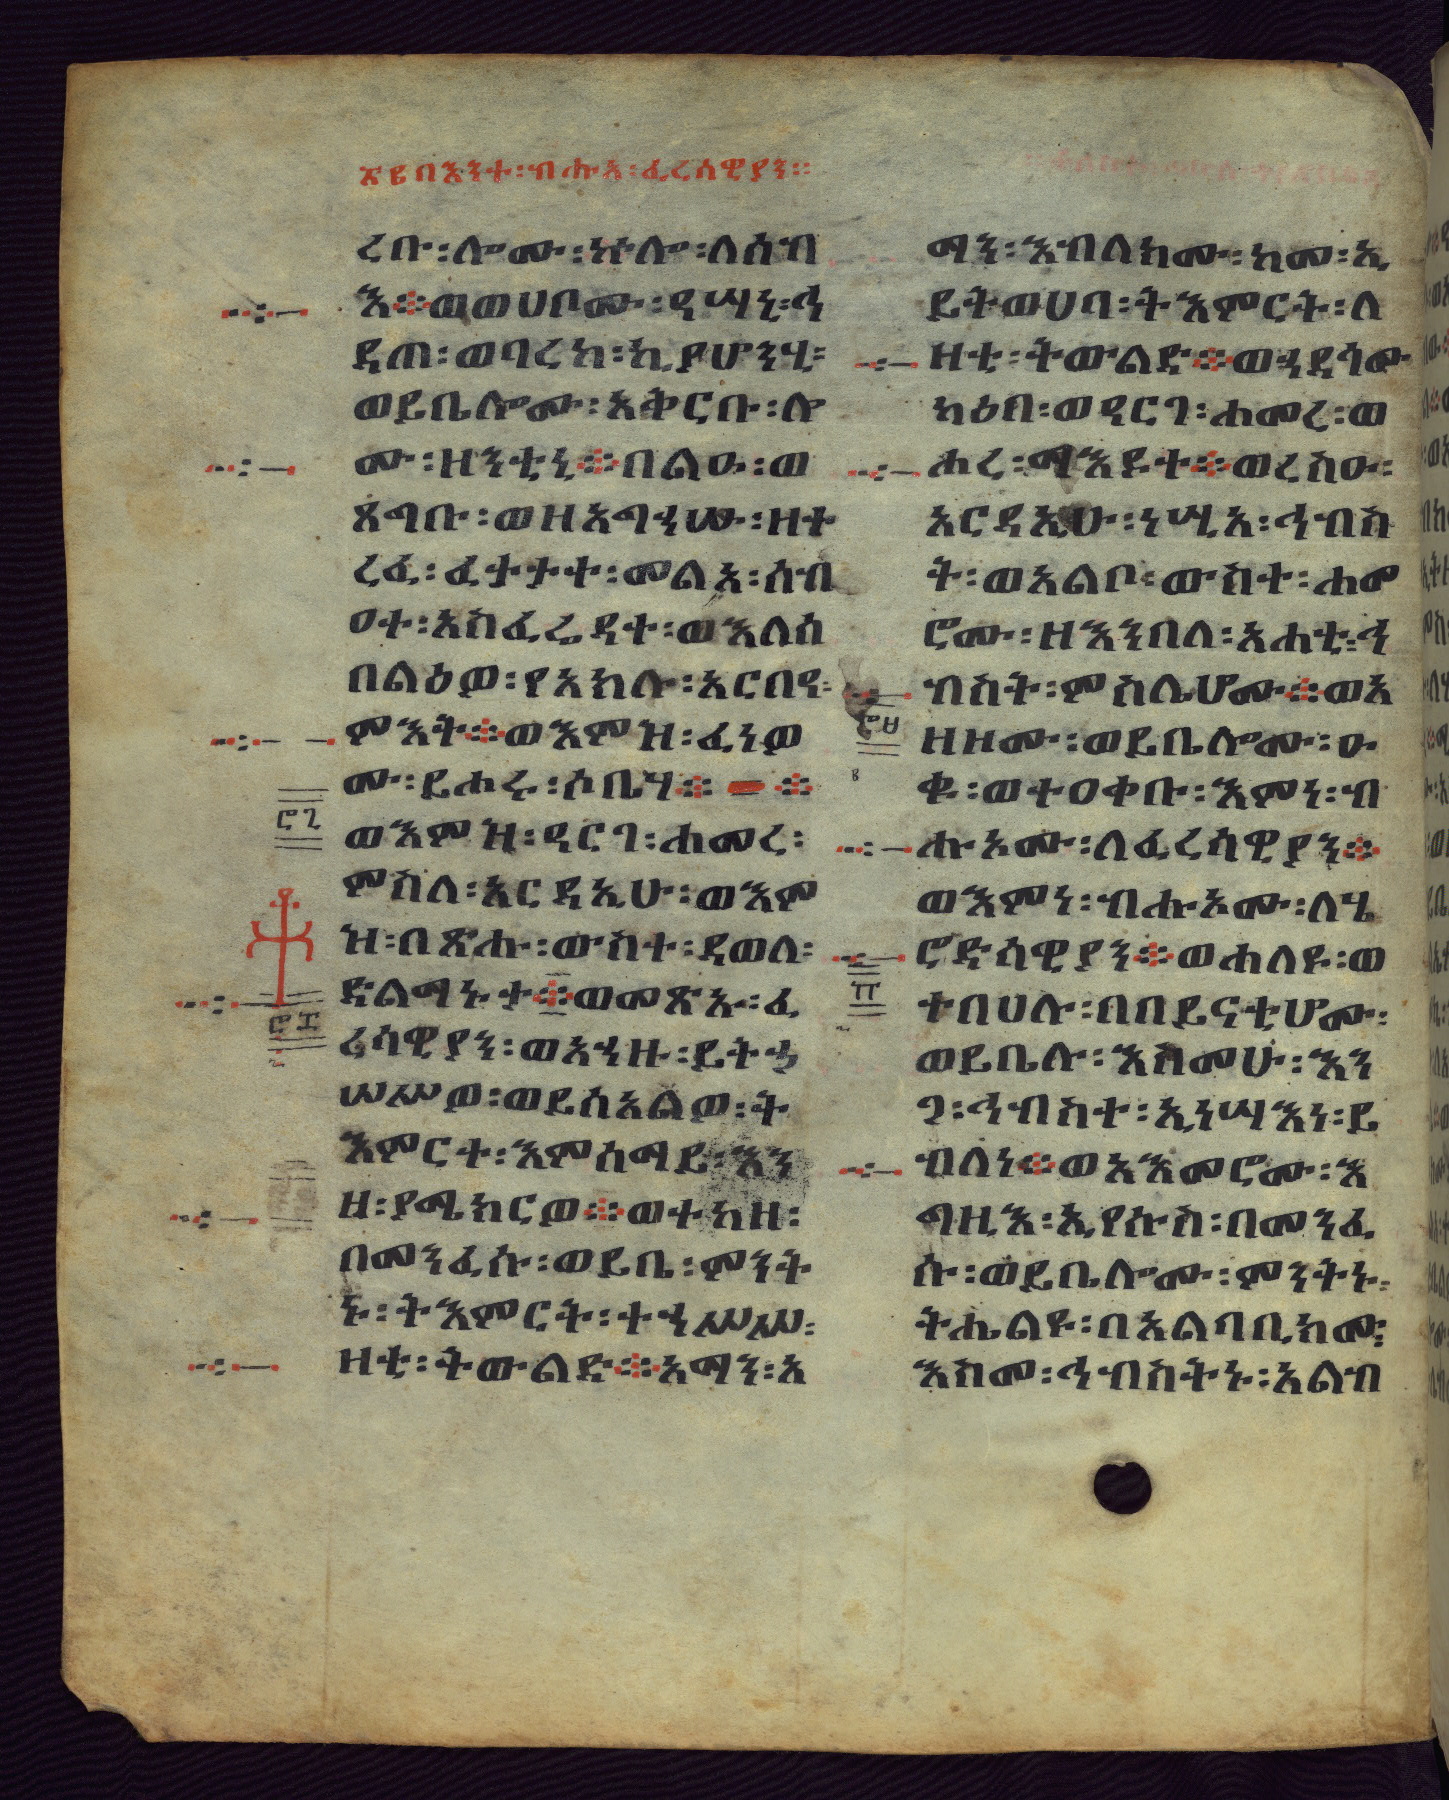 ፳፬በእንተ፡ብሑአ፡ፈረሰዊያን፡፡
ረቡ፡ሎሙ፡ኵሎ፡ለሰብ
እ፨ወወሀቦሙ፡ዓሣኒ፡ኅ
ዳጠ፡ወባረከ፡ኪያሆንሂ፡
ወይቤሎሙ፡አቅርቡ፡ሎ
ሙ፡ዘንቲኒ፨በልዑ፡ወ
ጸግቡ፡ወዘአግኀሡ፡ዘተ
ረፈ፡ፈተታተ፡መልአ፡ሰብ
ዐተ፡አስፈሬዳተ፡ወእለሰ
በልዕዎ፡የአክሉ፡አርበዓ፡
ምእት፨ወእምዝ፡ፈነዎ
ሙ፡ይሑሩ፡ሶቤሃ፨ ፨
ወእምዝ፡ዓርገ፡ሐመረ፡
ምስለ፡አርዳኢሁ፡ወእም
ዝ፡በጽሑ፡ውስተ፡ደወለ፡
ድልማኑተ፨ወመጽኡ፡ፈ
ሪሳዊያን፡ወአኀዙ፡ይትኃ
ሠሥዎ፡ወይሰአልዎ፡ት
እምርተ፡እምሰማይ፡እን
ዘ፡ያሜክርዎ፨ወተከዘ፡
በመንፈሱ፡ወይቤ፡ምንት
ኑ፡ትእምርት፡ተኀሥሥ፡
ዘቲ፡ትውልድ፨አማን፡እ
ማን፡እብለክሙ፡ከመ፡ኢ
ይትወሀባ፡ትእምርት፡ለ
ዛቲ፡ትውልድ፨ወኃደጎሙ
ካዕበ፡ወዓርገ፡ሐመረ፡ወ
ሐረ፡ማእዶተ፨ወረስዑ፡
አርዳኢሁ፡ነሢአ፡ኅብስ
ት፡ወአልቦ፡ውስተ፡ሐመ
ሮሙ፡ዘእንበለ፡አሐቲ፡ኅ
ብስት፡ምስሌሆሙ፨ወአ
ዘዘሙ፡ወይቤሎሙ፡ዑ
ቁ፡ወተዐቀቡ፡እምነ፡ብ
ሑኦሙ፡ለፈረሳዊያን፨
ወእምነ፡ብሑኦሙ፡ለሄ
ሮድሳዊያን፨ወሐለዩ፡ወ
ተበሀሉ፡በበይናቲሆሙ፡
ወይቤሉ፡እስመሁ፡እን
ጋ፡ኅብስተ፡ኢነሣእነ፡ይ
ብለነ፨ወአእመሮሙ፡እ
ግዚእ፡ኢየሱስ፡በመንፈ
ሱ፡ወይቤሎሙ፡ምንትኑ፡
ትሔልዩ፡በአልባቢክሙ፡
እስመ፡ኅብስትኑ፡አልብ